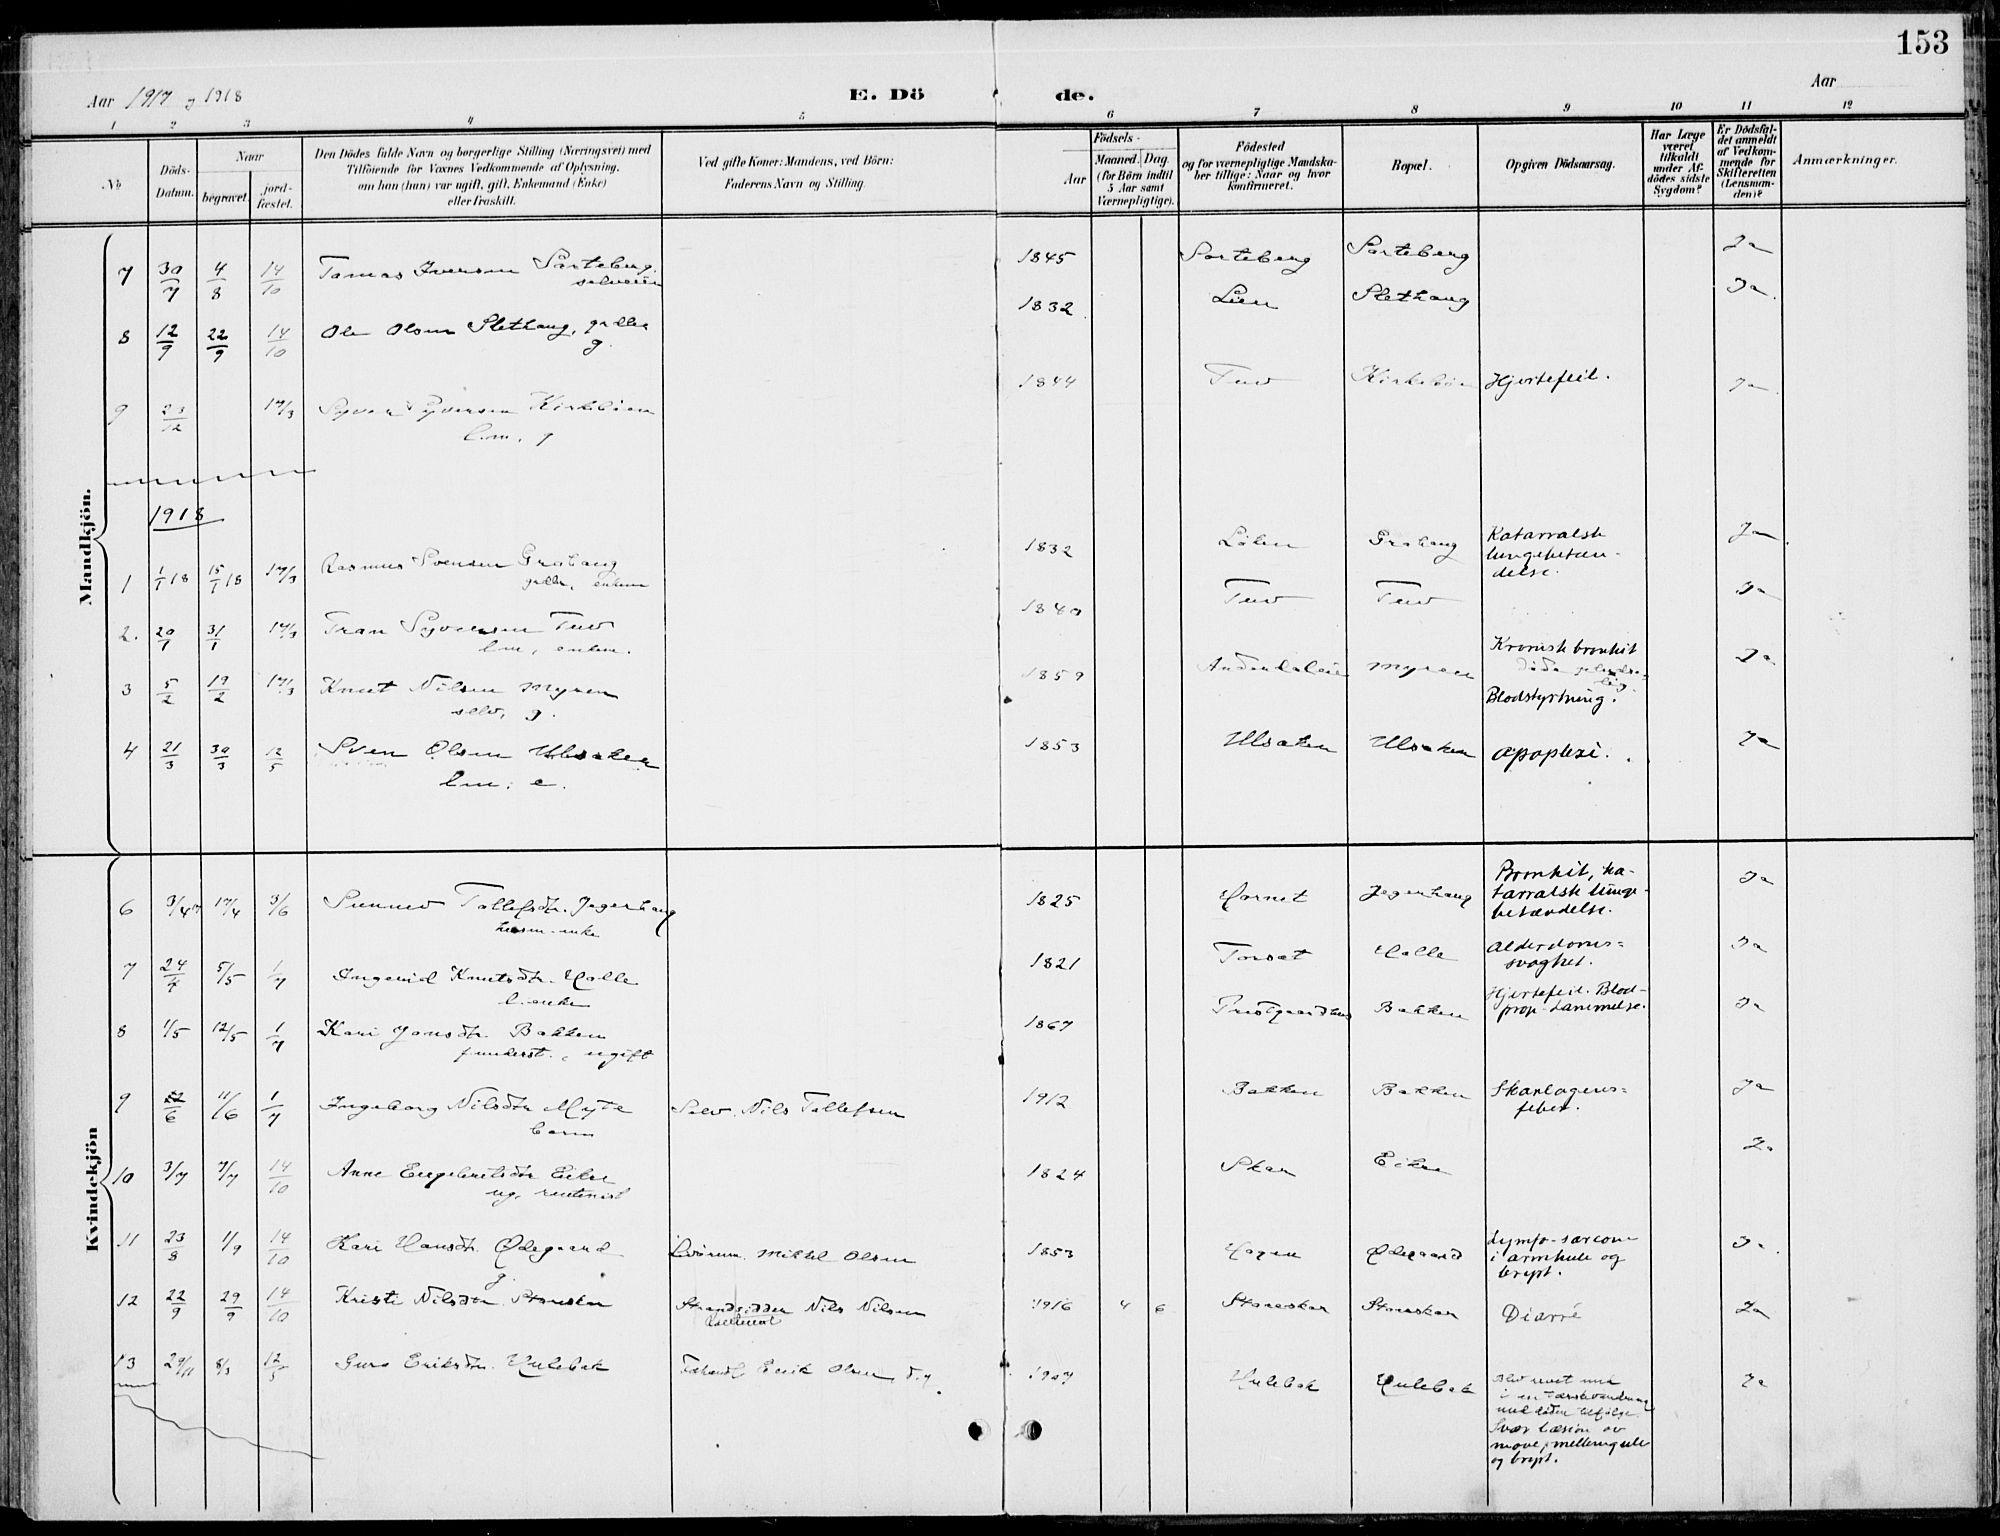 153
Aar 1917 og 1918
E. Dö de.
Aar
1 2 3 4 5 6 7 8 9 10 11 12
No
Döds-Datum.
Naar
begravet.
jord-fæstet.
Den Dödes fulde Navn og borgerlige Stilling (Næringsvei) med
Tilföiende for Voxnes Vedkommende af Oplysning,
om han (hun) var ugift, gift, Enkemand (Enke)
eller fraskilt.
Ved gifte Koner: Mandens, ved Börn:
Faderens Navn og Stilling.
Födsels-
Aar
Maaned. Dag.
(for Börn indtil
5 Aar samt
Værnepligtige).
Födested
og for værnepligtige Mandska-
ber tillige: Naar og hvor
konfirmeret.
Bopæl.
Opgiven Dödsaarsag.
Har Læge
været
tilkaldt
under Af-
dödes sidste
Sygdom?
Er Dödsfal-
det anmeldt
af Vedkom-
mende for
Skifteretten
(Lensman-
den)?
Anmærkninger.
Mandkjön.
7 30/7 4/8 14/10 Tomas Iversen Sorteberg 1845 Sorteberg Sorteberg Ja
selveier
8 12/9 22/9 14/10 Ole Olsen Slethaug, 1832 Lien Slethaug Ja
g.
9 23/12 17/3 Syver Syversen Kirkeböen 1844 Tuv Kirkeböen Hjertefeil. Ja
l.m. g
1918
1 1/1 18 15/1 18 17/3 Rasmus Svensen Grohaug 1832 Grohaug Katarralsk Ja
lungebetæn-
delse.
2. 20/1 31/1 17/3 Tran Syversen Tuv 1840 Tuv Tuv Ja
lm, enkem.
3 5/2 19/2 17/3 Knut Nilsen Myren 1859 Myren Kronisk bronkit Ja
selv, g.
Blodstyrtning.
4 21/3 30/3 12/5 Sven Olsen Ulsaker 1853 Ulsaker Ulsaker apoplexi. Ja
lm; e.
Kvindekjön
6 3/4 17 17/4 3/6 Sunnev Tollefsdtr. Jegerhaug 1825 Hornet Jegerhaug Bronkit, ka- Ja
tarralsk lunge-
betændelse.
husm. enke
7 24/4 5/5 1/7 Ingerid Knutsdtr. Halle 1821 Torset Halle Alderdoms- Ja
svaghet.
l. enke
8 1/5 12/5 1/7 Kari Jonsdtr. Bakken 1867 Bakken Hjertefeil. Blod- Ja
prop. Lammelse.
underst., ugift
9 6 11/6 1/7 Ingeborg Nilsdtr Myte Selv. Nils Tollefsen 1912 Bakken Bakken Skarlagens- Ja
feber.
barn
10 3/7 7/7 14/10 Anne Engebretsdtr Eikre 1824 Skar Eikre Ja
ug. rentenist
11 23/8 1/9 14/10 Kari Hansdtr. Ødegaard Mikkel Olsen 1853 Hagen Ødegaard Lymfo-sarcom Ja
i armhule og
bryst.
g.
12 22/9 29/9 14/10 Kristi Nilsdtr. Storeskar Strandsidder Nils Nilsen 1916 4 6 Storeskar Storeskar Diarré Ja
13 29/11 8/3 12/5 Guro Eriksdtr. Hulebak Erik Olsen d.y. 1907 Hulebak Hulebak Blev revet med Ja
i en
med döden tilfölge.
Svær læsion av
mave, mellemgulv
og bryst.